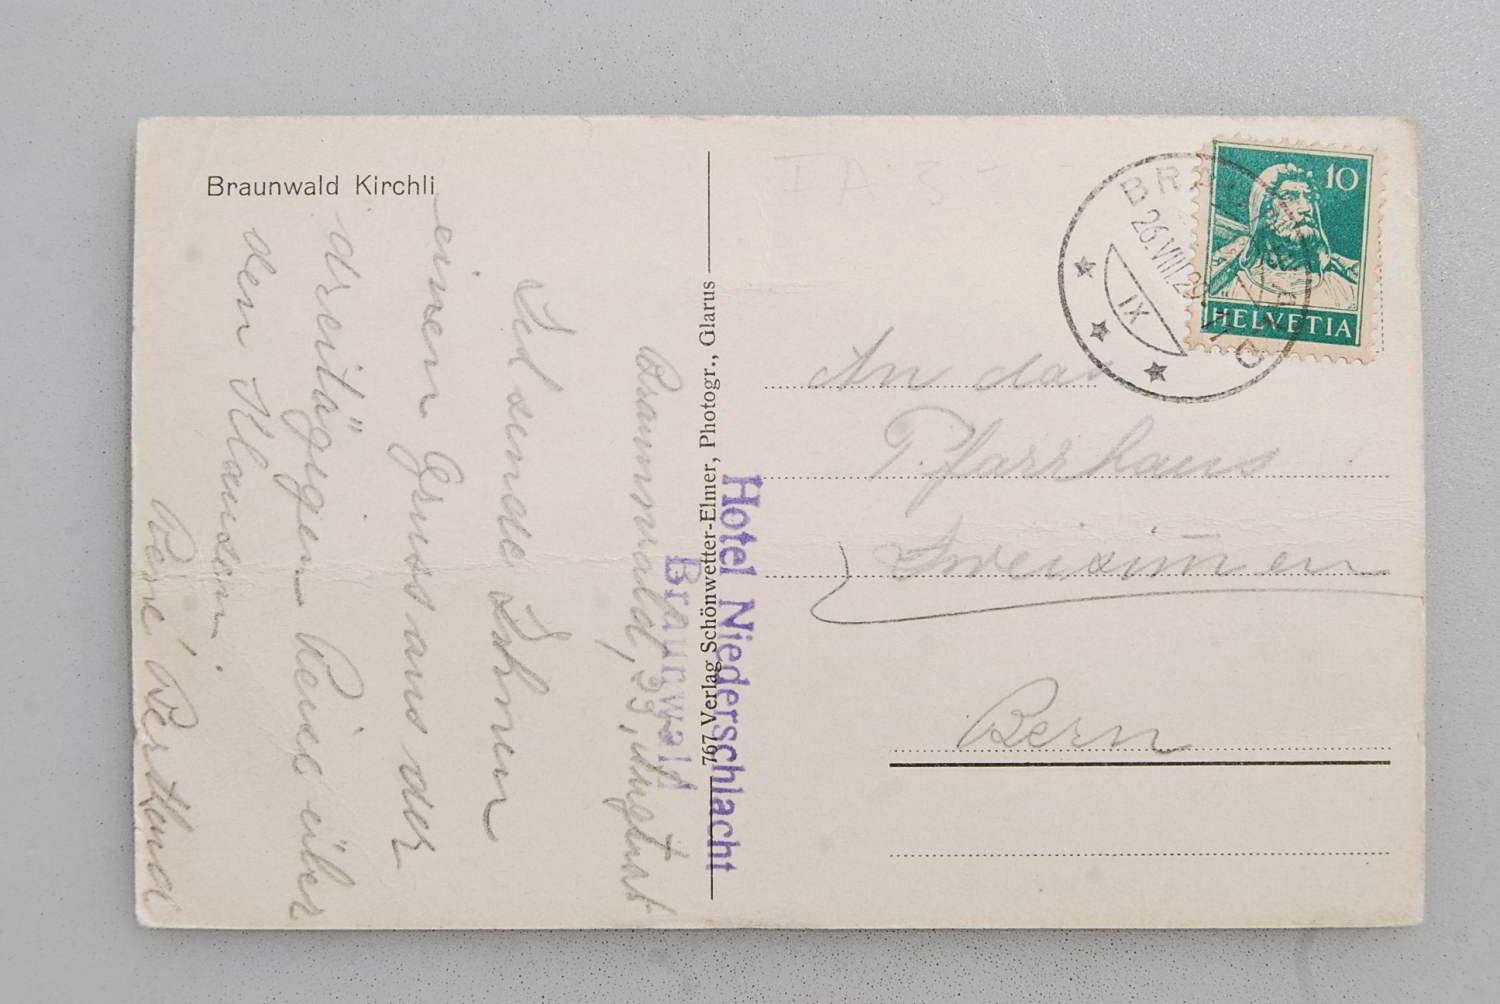 Braunwald Kirchli
Braunwald, 25. August
Ich sende Ihnen
einen Gruss aus der
dreitägigen Reise über
den Klausen.
René Bertland
767 Verlag Schönwetter-Elmer, Photogr., Glarus
Hotel Niederschlacht
Braunwald
10
HELVETIA
26.VIII.29
IX
An das
Pfarrhaus
Zweisimmen
Bern